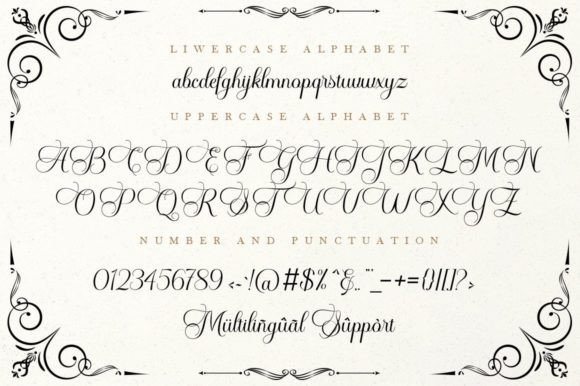 LIWERCASE ALPHABET
abcdefghijklmnopqrstuvwxyz
UPPERCASE ALPHABET
ABCDEFGHIJKLMN
OPQRSTUVWXYZ
NUMBER AND PUNCTUATION
0123456789 <~`!@#$%^&..¨'_-+={}[].?>
Mültilingûãl Sûppòrt